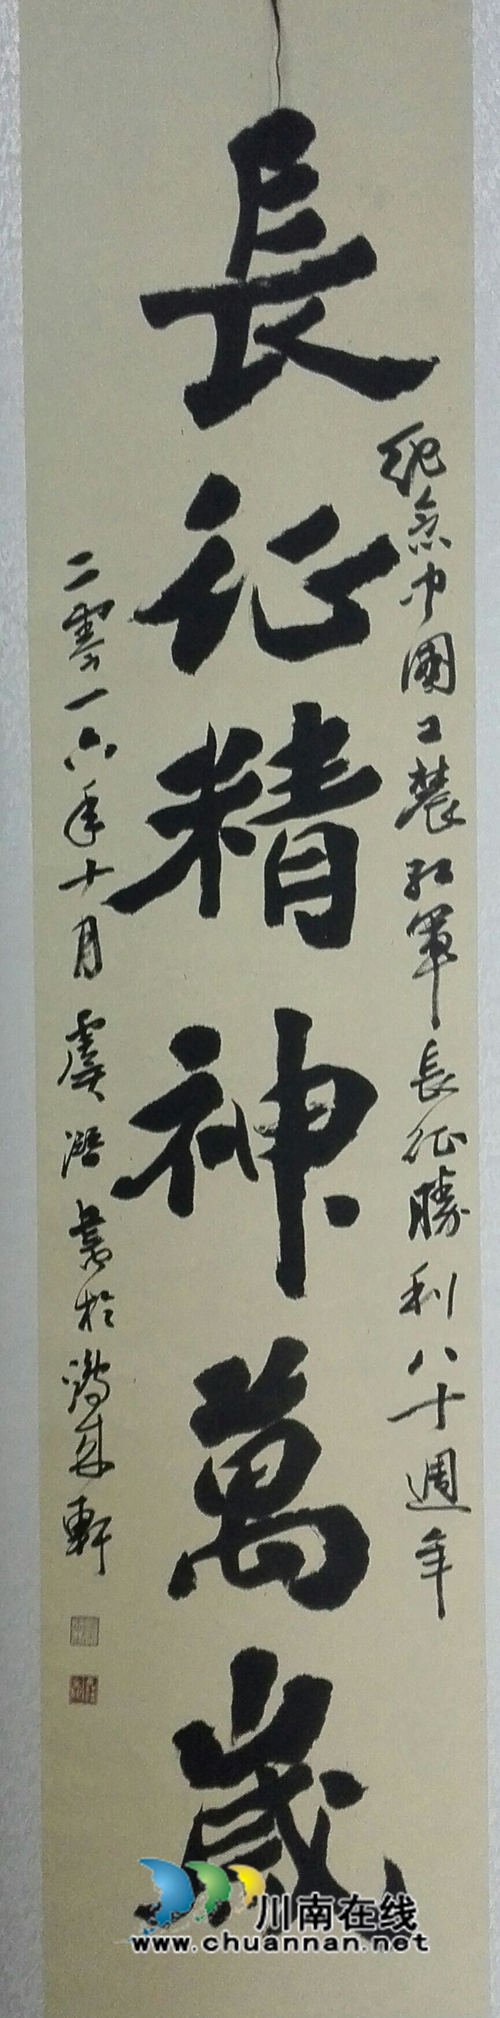 紀念中國工農紅軍長征勝利八十週年
長征精神萬歲
二零一六年十月虞潛書於鴻來軒
川南在线
www.chuannan.net